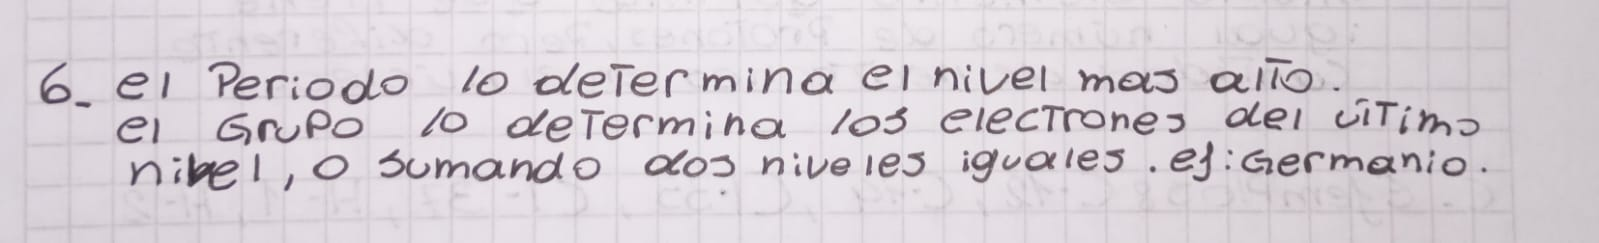 6- el Periodo lo determina el nivel mas alto.
el Grupo lo determina los electrones del ultimo
nibel, o sumando dos niveles iguales. ej: Germanio.